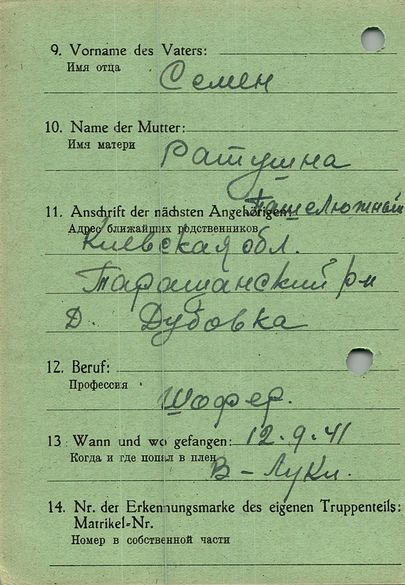 9. Vorname des Vaters:
Имя отца
Семен
10. Name der Mutter:
Имя матери
Ратушна
11. Anschrift der nächsten Angehörigen:
Адрес ближайших родственников
Киевская обл.
Таращанский р-н
д. Дубовка
12. Beruf:
Профессия
Шофер.
13 Wann und wo gefangen: 12.9.41
Когда и где попал в плен
В-Луки.
14. Nr. der Erkennungsmarke des eigenen Truppenteils:
Matrikel-Nr.
Номер в собственной части